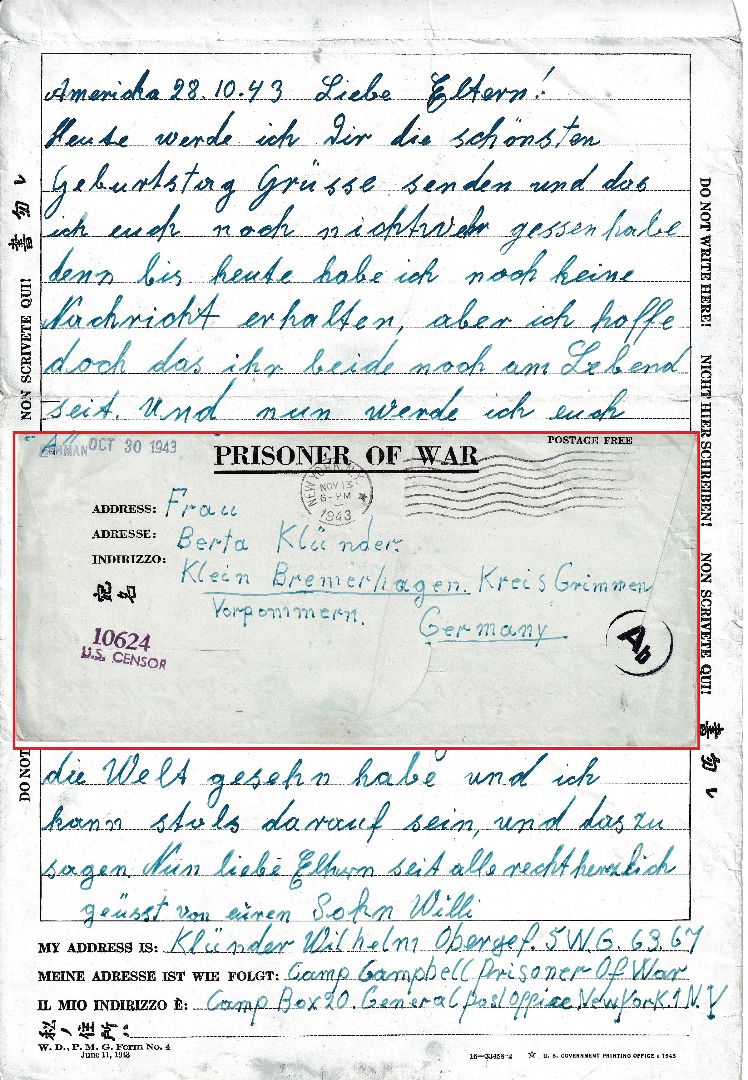 Amerika 28.10.43 Liebe Eltern!
Heute werde ich Dir die schönsten
Geburtstag Grüsse senden und das
ich euch noch nicht gessen habe
denn bis heute habe ich noch keine
Nachricht erhalten, aber ich hoffe
doch das ihr beide noch am Lebend
seit. Und nun werde ich euch
OCT 30 1943
PRISONER OF WAR
POSTAGE FREE
NEW YORK, N.Y.
NOV 13
6-PM
1943
ADDRESS: Frau
ADRESSE: Berta Klünder.
INDIRIZZO: Klein Bremerhagen. Kreis Grimmen
宛名
Vorpommern.
Germany.
10624
U.S. CENSOR
Ab
die Welt gesehn habe und ich
kann stols darauf sein, und das zu
sagen. Nun liebe Eltern seit alle recht herzlich
geüsst von euren Sohn Willi
MY ADDRESS IS: Klünder Wilhelm Obergef. 5 W.G. 63.67
MEINE ADRESSE IST WIE FOLGT: Camp Campbell Prisoner Of War
IL MIO INDIRIZZO È: Camp Box 20. General post Office. New York. 1 N.Y
私ノ住所:
W. D., P. M. G. Form No. 4
June 11, 1943
16—33458-2 ☆ U. S. GOVERNMENT PRINTING OFFICE : 1943
NON SCRIVETE QUI! 書勿レ
DO NOT
DO NOT WRITE HERE! NICHT HIER SCHREIBEN! NON SCRIVETE QUI! 書勿レ